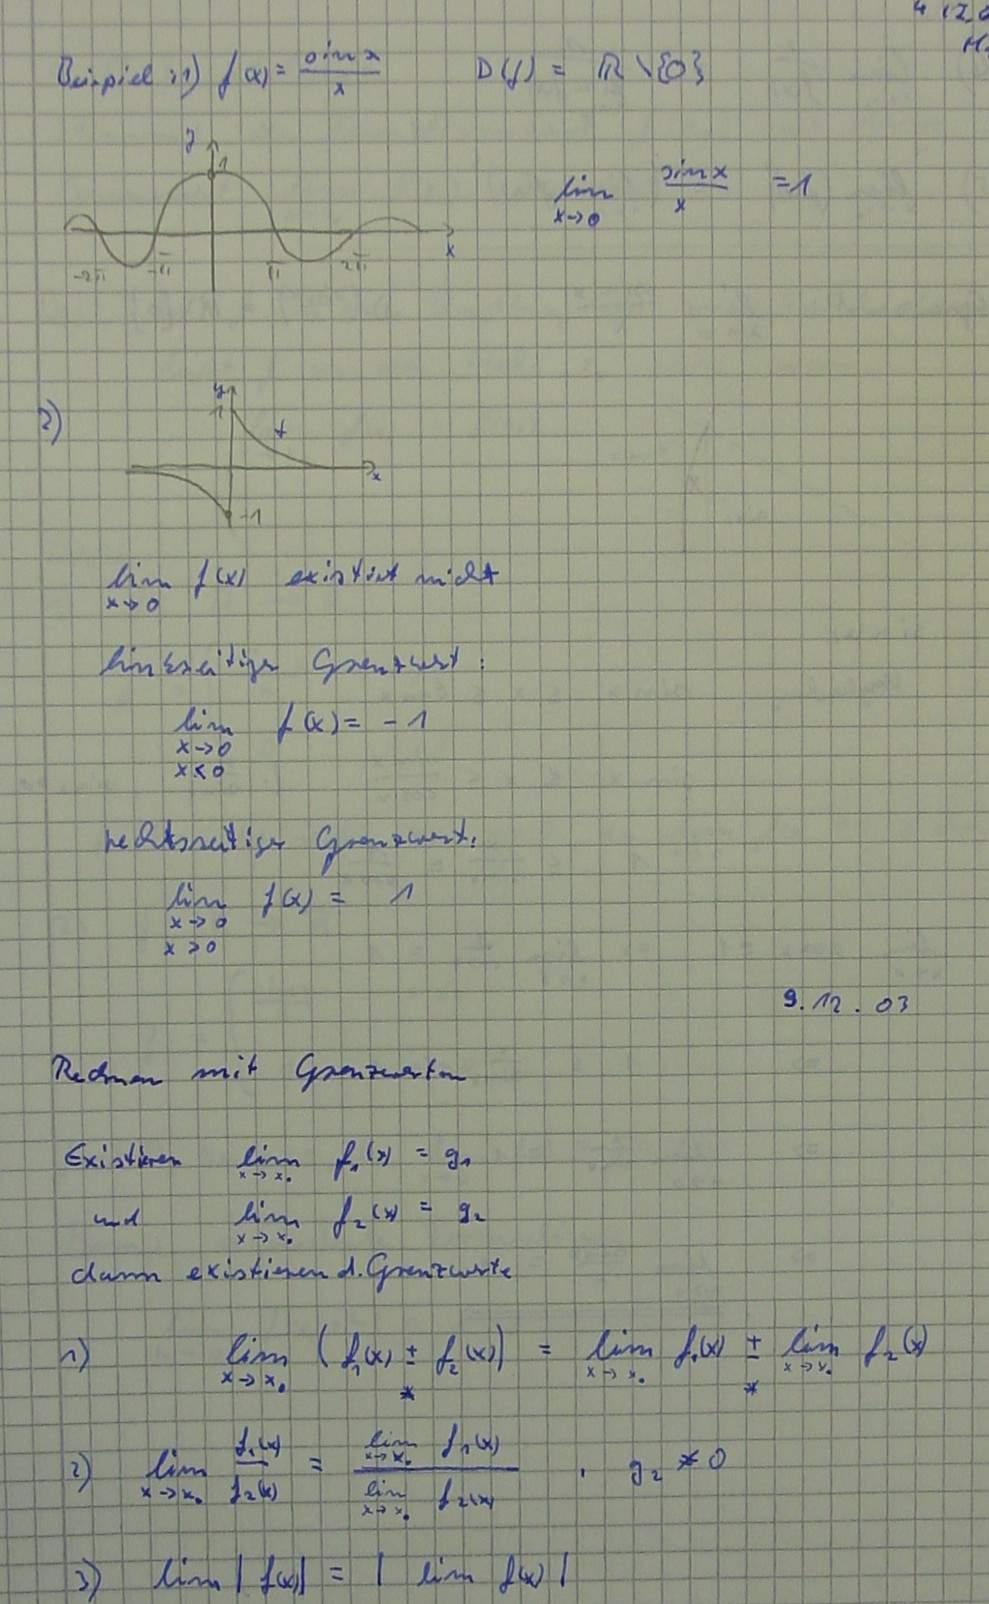 4.12.0
Beispiel: 1) f(x) = sin x / x D(f) = ℝ \ {0}
y
1
lim x→0 sin x / x = 1
-2π -π π 2π x
2)
y
1
f
x
-1
lim x→0 f(x) existiert nicht
linksseitiger Grenzwert:
lim x→0 x<0 f(x) = -1
rechtsseitiger Grenzwert:
lim x→0 x>0 f(x) = 1
9.12.03
Rechnen mit Grenzwerten
Existieren lim x→x₀ f₁(x) = g₁
und lim x→x₀ f₂(x) = g₂
dann existieren d. Grenzwerte
1) lim x→x₀ (f₁(x) ± f₂(x)) = lim x→x₀ f₁(x) ± lim x→x₀ f₂(x)
* *
2) lim x→x₀ f₁(x) / f₂(x) = lim x→x₀ f₁(x) / lim x→x₀ f₂(x) , g₂ ≠ 0
3) lim |f(x)| = | lim f(x) |